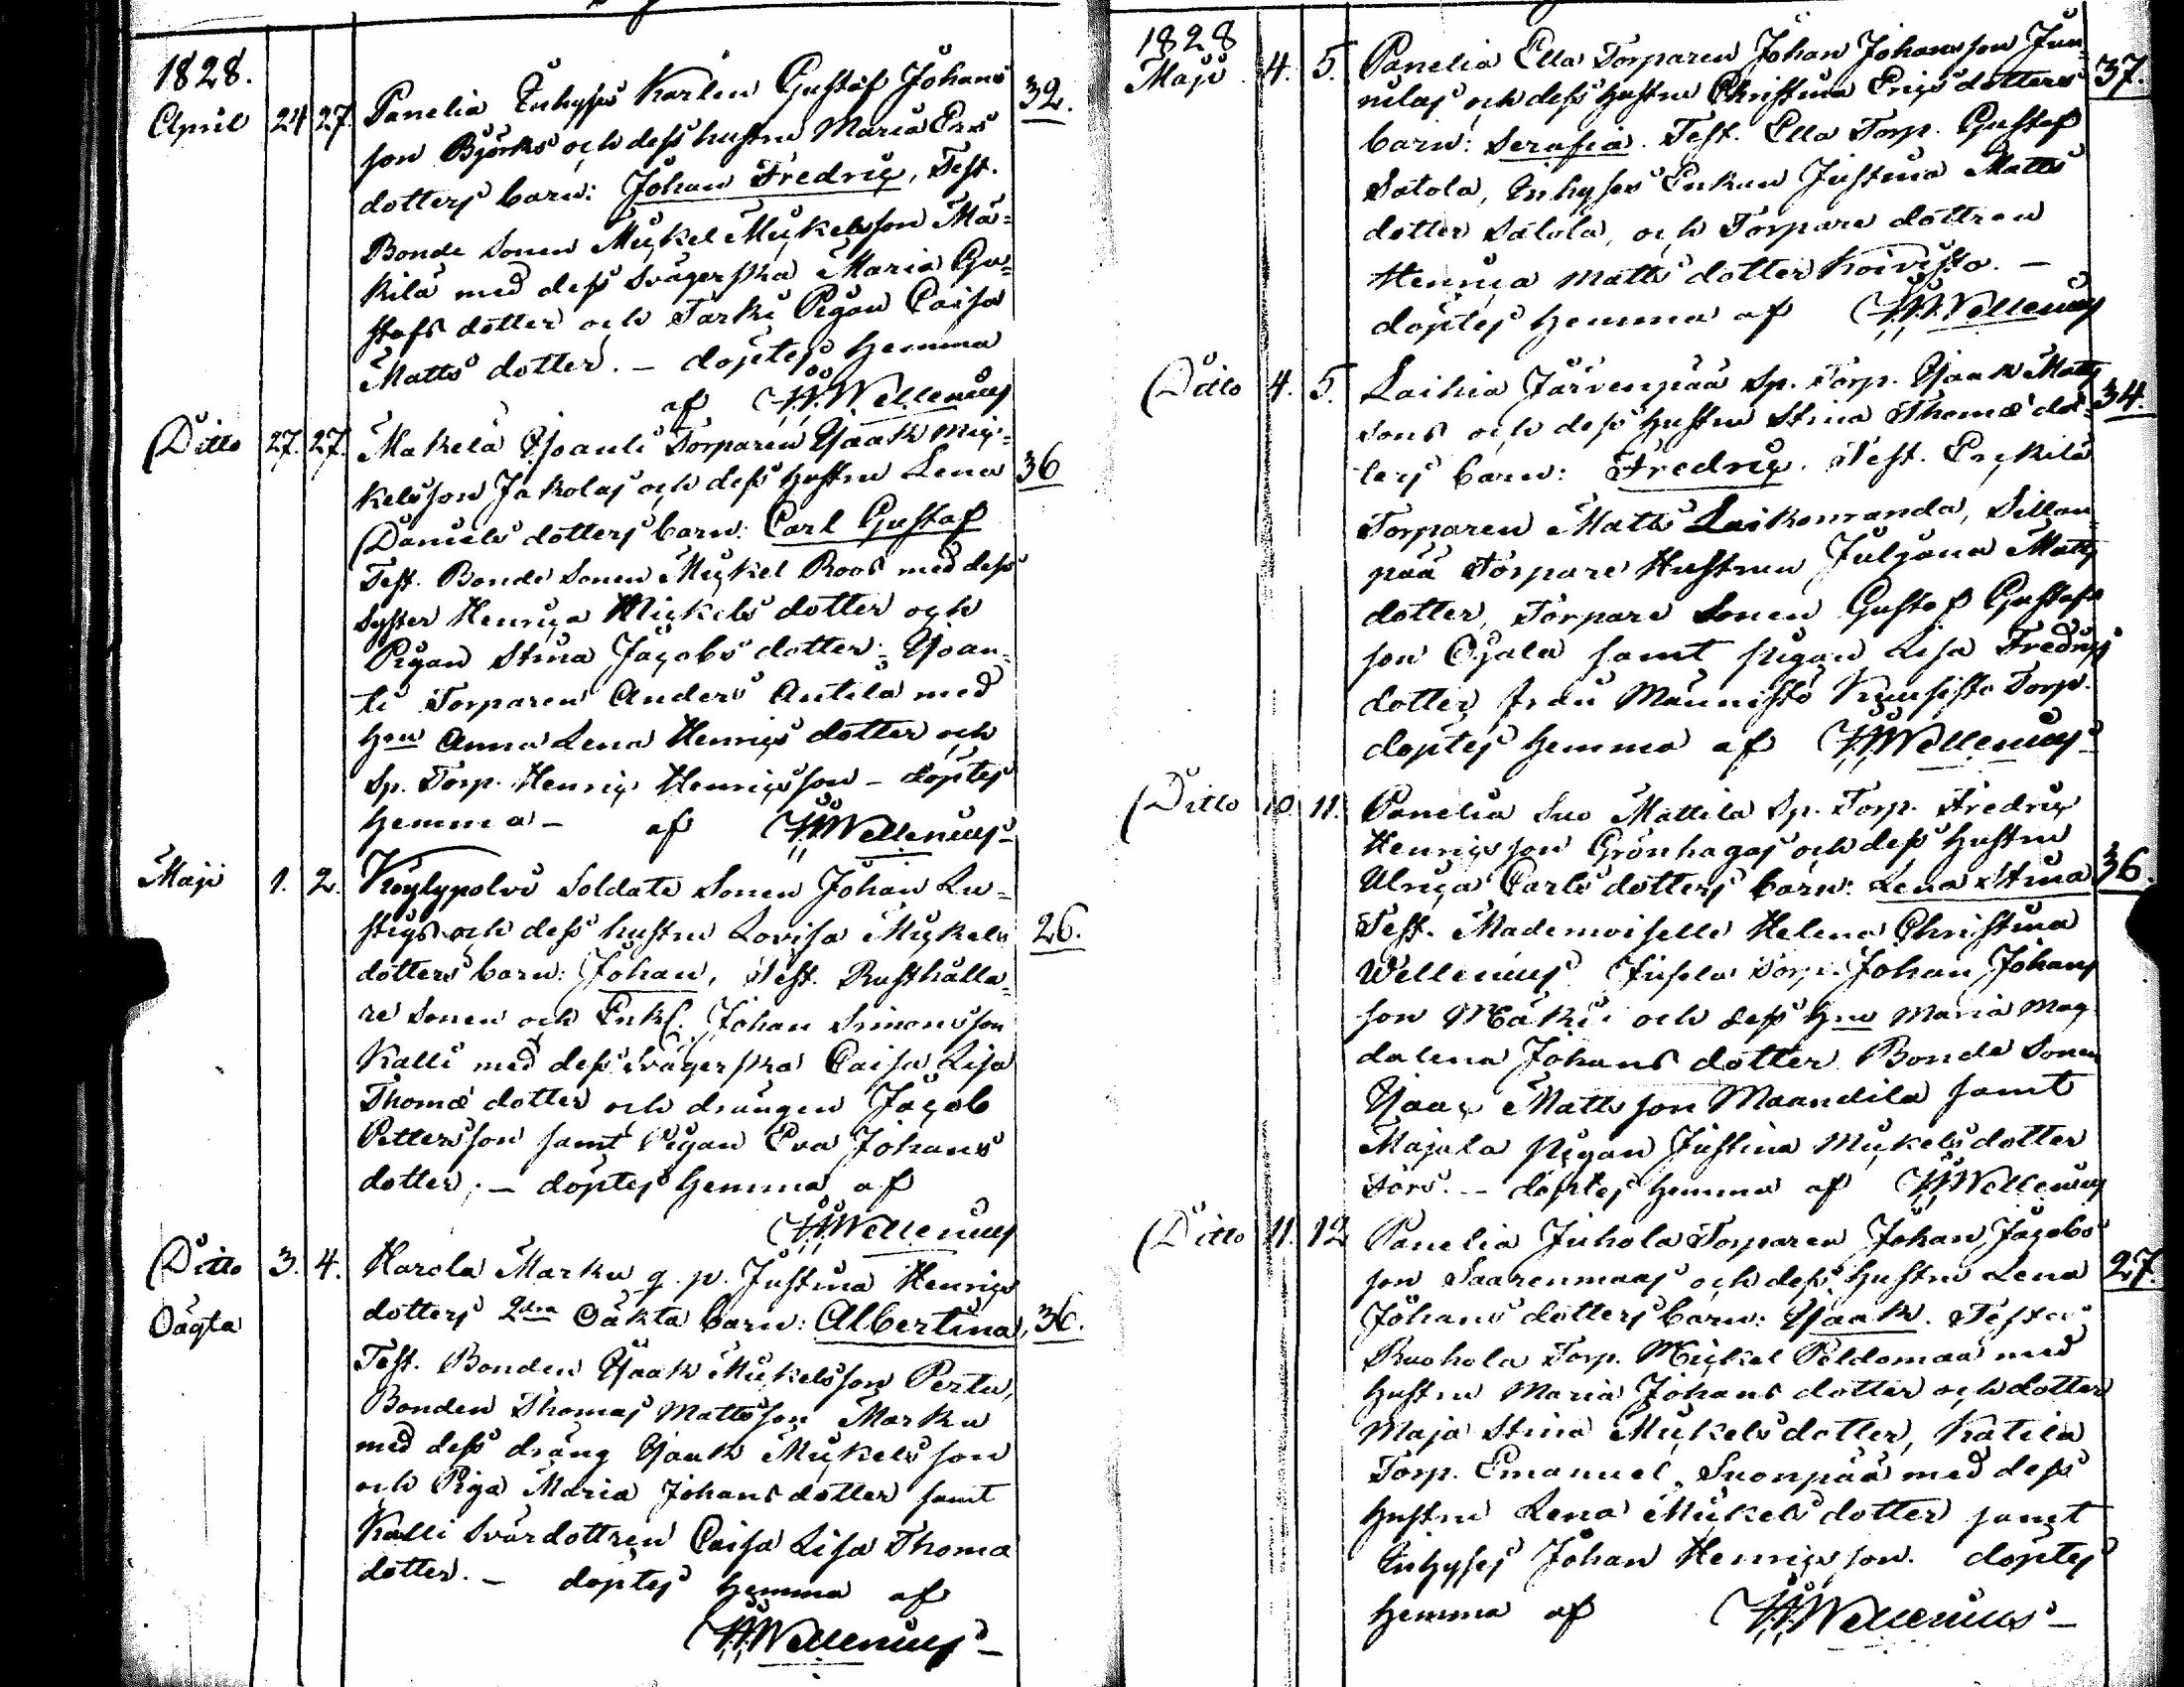 1828.
April 24 27. Panelia Inhyses Karlen Gustaf Johans
son Björks och dess hustru Maria Ers
dotters barn: Johan Fredric, Test. 32.
Bonde Sonen Mickel Mickelsson Mä=
kilä med dess Svägerska Maria Gu=
stafs dotter och Tarki Pigan Caisa
Matts dotter. – döptes hemma
af WWellenius
Ditto 27. 27. Makela Isoanti Torparen Isaak Mic=
kelsson Jakolas och dess hustru Lena 36
Daniels dotters barn: Carl Gustaf
Test. Bonde Sonen Mickel Roos med dess
Syster Henrica Mickels dotter och
Pigan Stina Jacobs dotter, Isoan=
ti Torparen Anders Antila med
Hru Anna Lena Henrics dotter och
Sp. Torp. Henric Henricsson – döptes
hemma – af WWellenius –
Maji 1. 2. Kylypolvi Soldate Sonen Johan Lu=
stigs och dess hustru Lovisa Mickels 26.
dotters barn: Johan, Test. Rusthålla=
re Sonen och Enkl. Johan Simonsson
Kalli med dess svägerska Caisa Lisa
Thomæ dotter och drängen Jacob
Pettersson samt Pigan Eva Johans
dotter. – döptes hemma af
WWellenius
Ditto 3. 4. Harola Marku g. p. Justina Henrics
Oägta dotters 2dra Oäkta barn: Albertina, 36.
Test. Bonden Isaak Mickelsson Pertu,
Bonden Thomas Mattsson Marku
med dess dräng Isaak Mickelsson
och Piga Maria Johans dotter samt
Kalli Svärdottren Caisa Lisa Thomæ
dotter. – döptes hemma af
WWellenius –
1828
Maji 4. 5. Panelia Ella Torparen Johan Johansson Jun= 37.
nilas och dess hustru Christina Erics dotters
barn: Serafia. Test. Ella Torp. Gustaf
Satola, Inhyses Enkan Justina Matts
dotter Satola, och Torpare dottren
Henrica Matts dotter Koivisto. –
döptes hemma af WWellenius
Ditto 4. 5. Laihia Järvenpää Sp. Torp. Isaak Matts 34.
sons och dess hustru Stina Thomæ dot=
ters barn: Fredric. Test. Erckilä
Torparen Matts Laikonranda, Sillan=
pää Torpare Hustrun Juljana Matts
dotter, Torpare Sonen Gustaf Gustafs
son Ojala samt pigan Lisa Fredrics
dotter från Männistö Torp.
döptes hemma af WWellenius
Ditto 10. 11. Panelia Suo Mattila Sp. Torp. Fredric
Henricsson Grönhagas och dess hustru
Ulrica Carls dotters barn: Lena Stina 36.
Test. Mademoiselle Helena Christina
Wellenius Torp. Johan Johans
son Mäki och dess Hru Maria Mag
dalena Johans dotter Bonde Sonen
Isaac Mattsson Maandila samt
Majala pigan Justina Mickels dotter
Sörs. – döptes hemma af WWellenius
Ditto 11. 12 Panelia Juhola Torparen Johan Jacobs
son Saarenmaas och dess hustru Lena 27.
Johans dotters barn: Isaak. Testes
Ruohola Torp. Mickel Peldomaa med
hustru Maria Johans dotter och dotter
Maja Stina Mickels dotter, Katila
Torp. Emanuel Suonpää med dess
hustru Lena Mickels dotter samt
Inhyses Johan Henricsson. döptes
hemma af WWellenius –